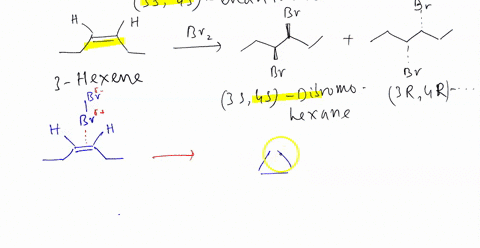 (3S, 4S) -
H H
Br2
Br
Br
+
Br
Br
3-Hexene
(3S, 4S) - Dibromo-
hexane
(3R, 4R) - ....
Br δ-
Br δ+
H H